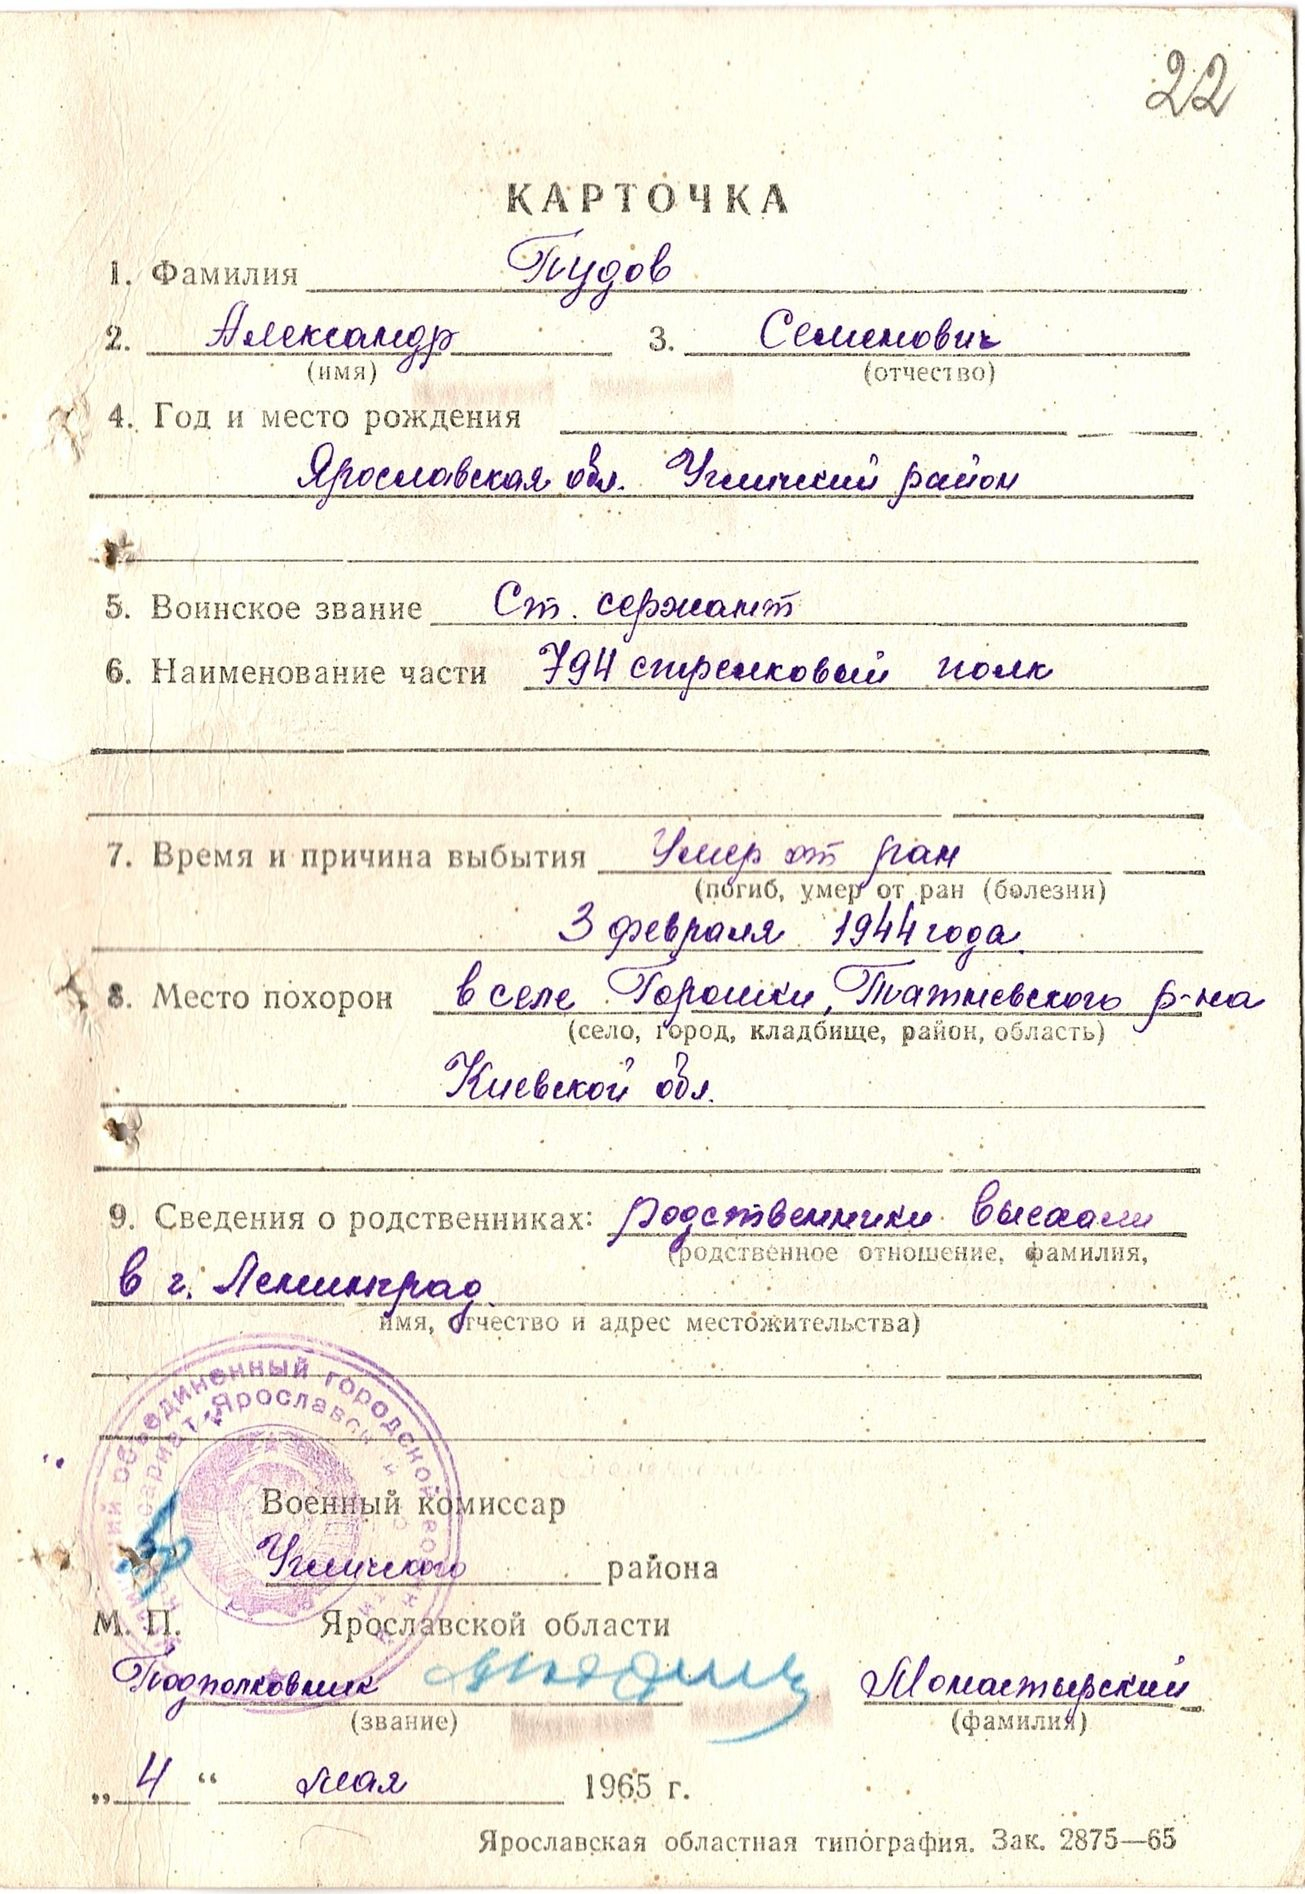 22
КАРТОЧКА
1. Фамилия Пудов
2. Александр 3. Семенович
(имя) (отчество)
4. Год и место рождения
Ярославская обл. Угличский район
5. Воинское звание Ст. сержант
6. Наименование части 794 стрелковый полк
7. Время и причина выбытия Умер от ран
(погиб, умер от ран (болезни)
3 февраля 1944 года.
8. Место похорон в селе Горошки, Тжневского р-на
(село, город, кладбище, район, область)
Киевской обл.
9. Сведения о родственниках: родственники выехали
(родственное отношение, фамилия,
в г. Ленинград.
имя, отчество и адрес местожительства)
объединенный городской
Ярославской
Военный комиссар
Угличского района
М. П. Ярославской области
Подполковник Монастырский
(звание) (фамилия)
„ 4 “ мая 1965 г.
Ярославская областная типография. Зак. 2875—65